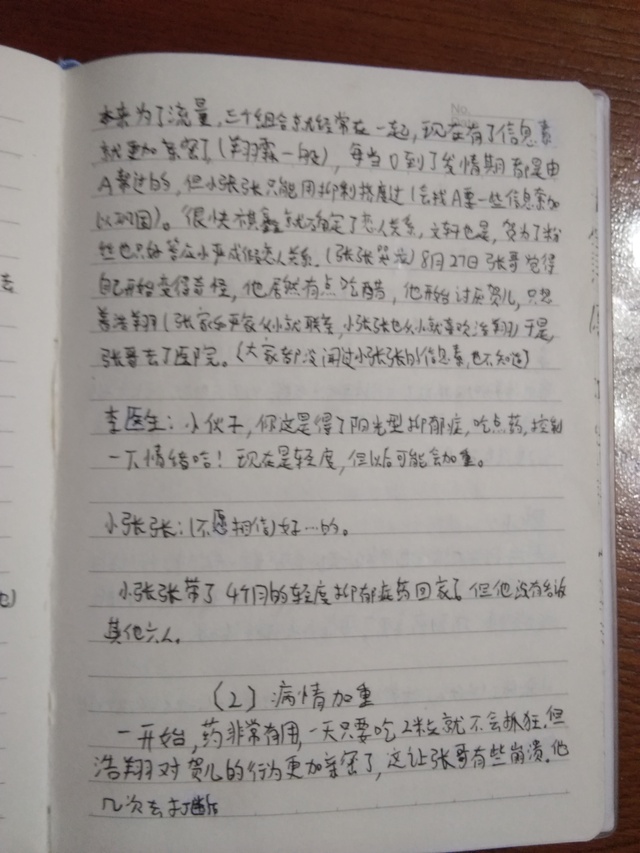 No.
本来为了流量,三个组合就经常在一起,现在有了信息素
就更加亲密了(翔霖一般),每当O到了发情期都是由
A帮过的,但小张张只能用抑制挤度过(会找A要一些信息素加
以巩固)。很快祺鑫就确定了恋人关系,文轩也是,贺为了粉
丝也只好答应小严成假恋人关系.(张张哭泣)8月27日张哥觉得
自己开始变得奇怪,他居然有点吃醋,他开始讨厌贺儿,只想
着浩翔(张家和严家从小就联系,小张张也从小就喜欢浩翔)于是,
张哥去了医院。(大家都没闻过小张张的信息素,也不知道)
李医生:小伙子,你这是得了阳光型抑郁症,吃点药,控制
一下情绪哈!现在是轻度,但以后可能会加重。
小张张:(不愿相信)好…的。
小张张带了4个月的轻度抑郁症药回家了但他没有告诉
其他六人.
(2)病情加重
一开始,药非常有用,一天只要吃2粒就不会抓狂.但
浩翔对贺儿的行为更加亲密了,这让张哥有些崩溃.他
几次去打断